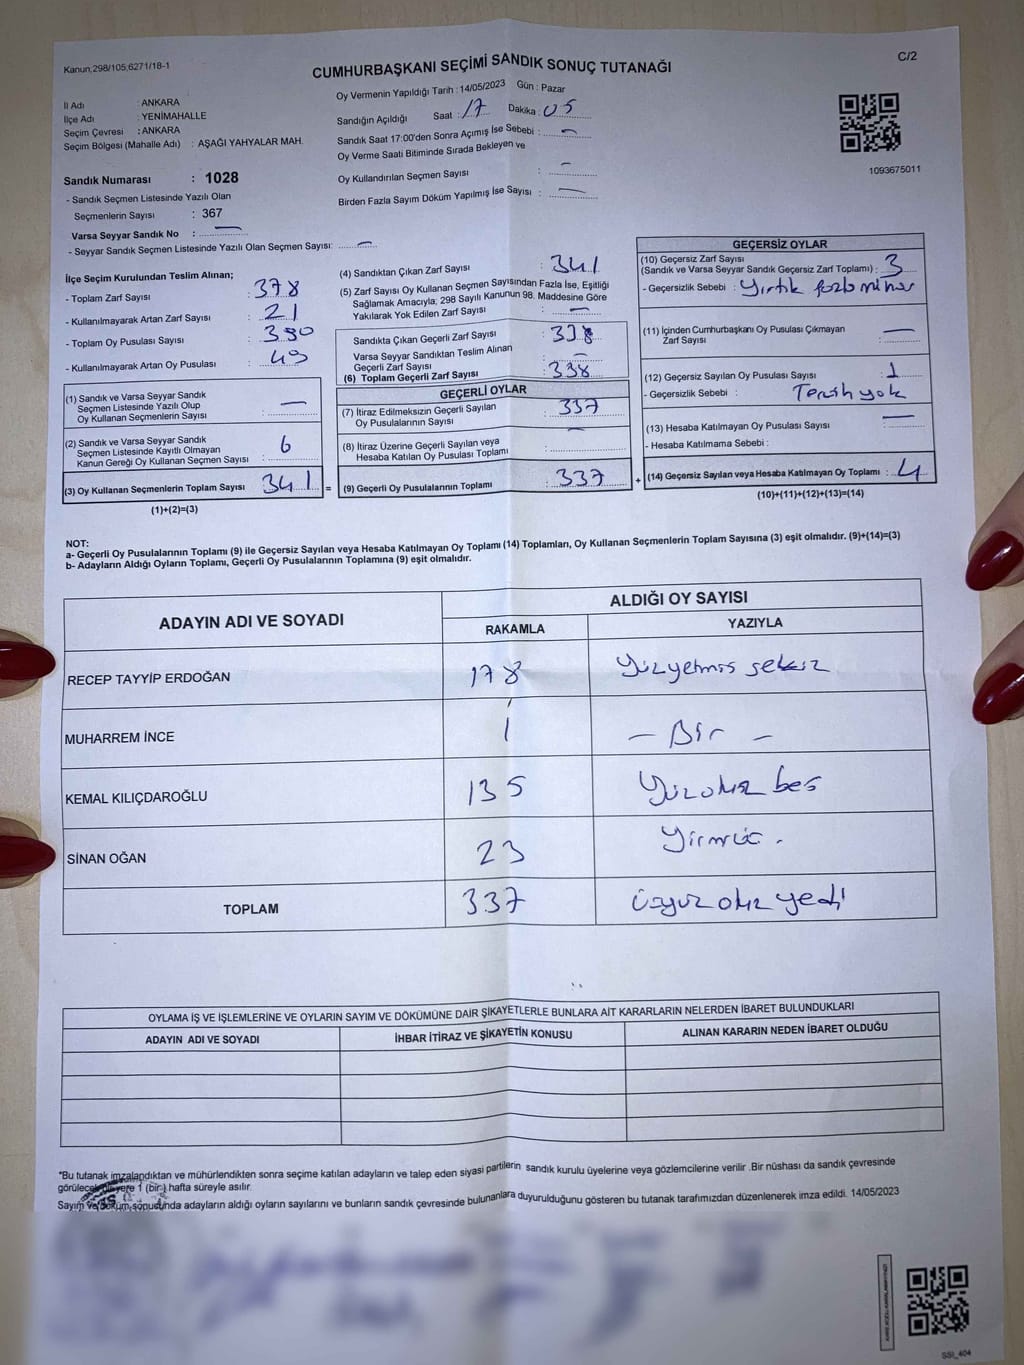 Kanun;298/105,6271/18-1
C/2
CUMHURBAŞKANI SEÇİMİ SANDIK SONUÇ TUTANAĞI
İl Adı : ANKARA
İlçe Adı : YENİMAHALLE
Seçim Çevresi : ANKARA
Seçim Bölgesi (Mahalle Adı) : AŞAĞI YAHYALAR MAH.
Sandık Numarası : 1028
- Sandık Seçmen Listesinde Yazılı Olan
Seçmenlerin Sayısı : 367
Varsa Seyyar Sandık No : —
- Seyyar Sandık Seçmen Listesinde Yazılı Olan Seçmen Sayısı: —
Oy Vermenin Yapıldığı Tarih : 14/05/2023 Gün : Pazar
Sandığın Açıldığı Saat : 17 Dakika : 05
Sandık Saat 17:00'den Sonra Açımış İse Sebebi : —
Oy Verme Saati Bitiminde Sırada Bekleyen ve
Oy Kullandırılan Seçmen Sayısı : —
Birden Fazla Sayım Döküm Yapılmış İse Sayısı : —
1093675011
İlçe Seçim Kurulundan Teslim Alınan;
- Toplam Zarf Sayısı : 378
- Kullanılmayarak Artan Zarf Sayısı : 21
- Toplam Oy Pusulası Sayısı : 390
- Kullanılmayarak Artan Oy Pusulası : 49
(1) Sandık ve Varsa Seyyar Sandık
Seçmen Listesinde Yazılı Olup
Oy Kullanan Seçmenlerin Sayısı : —
(2) Sandık ve Varsa Seyyar Sandık
Seçmen Listesinde Kayıtlı Olmayan
Kanun Gereği Oy Kullanan Seçmen Sayısı : 6
(3) Oy Kullanan Seçmenlerin Toplam Sayısı 341 =
(1)+(2)=(3)
(4) Sandıktan Çıkan Zarf Sayısı : 341
(5) Zarf Sayısı Oy Kullanan Seçmen Sayısından Fazla İse, Eşitliği
Sağlamak Amacıyla; 298 Sayılı Kanunun 98. Maddesine Göre
Yakılarak Yok Edilen Zarf Sayısı : —
Sandıkta Çıkan Geçerli Zarf Sayısı : 338
Varsa Seyyar Sandıktan Teslim Alınan
Geçerli Zarf Sayısı : —
(6) Toplam Geçerli Zarf Sayısı : 338
GEÇERLİ OYLAR
(7) İtiraz Edilmeksizin Geçerli Sayılan
Oy Pusulalarının Sayısı : 337
(8) İtiraz Üzerine Geçerli Sayılan veya
Hesaba Katılan Oy Pusulası Toplamı : —
(9) Geçerli Oy Pusulalarının Toplamı : 337 +
GEÇERSİZ OYLAR
(10) Geçersiz Zarf Sayısı
(Sandık ve Varsa Seyyar Sandık Geçersiz Zarf Toplamı) : 3
- Geçersizlik Sebebi : Yırtık fazla mühür
(11) İçinden Cumhurbaşkanı Oy Pusulası Çıkmayan
Zarf Sayısı : —
(12) Geçersiz Sayılan Oy Pusulası Sayısı : 1
- Geçersizlik Sebebi : Tercih yok
(13) Hesaba Katılmayan Oy Pusulası Sayısı : —
- Hesaba Katılmama Sebebi :
(14) Geçersiz Sayılan veya Hesaba Katılmayan Oy Toplamı : 4
(10)+(11)+(12)+(13)=(14)
NOT:
a- Geçerli Oy Pusulalarının Toplamı (9) ile Geçersiz Sayılan veya Hesaba Katılmayan Oy Toplamı (14) Toplamları, Oy Kullanan Seçmenlerin Toplam Sayısına (3) eşit olmalıdır. (9)+(14)=(3)
b- Adayların Aldığı Oyların Toplamı, Geçerli Oy Pusulalarının Toplamına (9) eşit olmalıdır.
ADAYIN ADI VE SOYADI
ALDIĞI OY SAYISI
RAKAMLA YAZIYLA
RECEP TAYYİP ERDOĞAN 178 Yüzyetmiş sekiz
MUHARREM İNCE 1 — Bir —
KEMAL KILIÇDAROĞLU 135 Yüzotuz beş
SİNAN OĞAN 23 Yirmiüç .
TOPLAM 337 üçyüz otuz yedi
OYLAMA İŞ VE İŞLEMLERİNE VE OYLARIN SAYIM VE DÖKÜMÜNE DAİR ŞİKAYETLERLE BUNLARA AİT KARARLARIN NELERDEN İBARET BULUNDUKLARI
ADAYIN ADI VE SOYADI İHBAR İTİRAZ VE ŞİKAYETİN KONUSU ALINAN KARARIN NEDEN İBARET OLDUĞU
*Bu tutanak imzalandıktan ve mühürlendikten sonra seçime katılan adayların ve talep eden siyasi partilerin sandık kurulu üyelerine veya gözlemcilerine verilir .Bir nüshası da sandık çevresinde
görülecek bir yere 1 (bir ) hafta süreyle asılır.
Sayım ve döküm sonusunda adayların aldığı oyların sayılarını ve bunların sandık çevresinde bulunanlara duyurulduğunu gösteren bu tutanak tarafımızdan düzenlenerek imza edildi. 14/05/2023
SSI_404